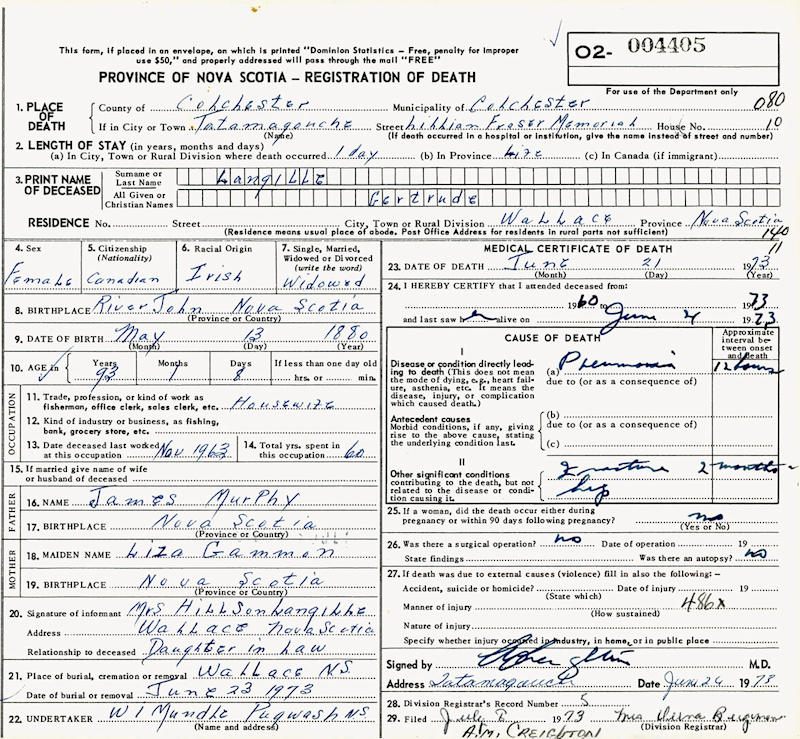 This form, if placed in an envelope, on which is printed "Dominion Statistics – Free, penalty for improper
use $50," and properly addressed will pass through the mail "FREE"
PROVINCE OF NOVA SCOTIA – REGISTRATION OF DEATH
O2- 004405
For use of the Department only
1. PLACE OF DEATH County of Colchester Municipality of Colchester 080
If in City or Town Tatamagouche Street Lillian Fraser Memorial House No. 10
(Name) (If death occurred in a hospital or institution, give the name instead of street and number)
2. LENGTH OF STAY (in years, months and days)
(a) In City, Town or Rural Division where death occurred 1 day (b) In Province Life (c) In Canada (if immigrant)
3. PRINT NAME OF DECEASED Surname or Last Name Langille
All Given or Christian Names Gertrude
RESIDENCE No. Street City, Town or Rural Division Wallace Province Nova Scotia
(Residence means usual place of abode. Post Office Address for residents in rural parts not sufficient) 140
11
4. Sex Female
5. Citizenship (Nationality) Canadian
6. Racial Origin Irish
7. Single, Married, Widowed or Divorced (write the word) Widowed
8. BIRTHPLACE River John Nova Scotia
(Province or Country)
9. DATE OF BIRTH May 13 1880
(Month) (Day) (Year)
10. AGE in Years 93 Months 1 Days 8 If less than one day old
hrs. or min.
OCCUPATION
11. Trade, profession, or kind of work as
fisherman, office clerk, sales clerk, etc. Housewife
12. Kind of industry or business, as fishing,
bank, grocery store, etc.
13. Date deceased last worked at this occupation Nov 1963
14. Total yrs. spent in this occupation 60
15. If married give name of wife
or husband of deceased
FATHER
16. NAME James Murphy
17. BIRTHPLACE Nova Scotia
(Province or Country)
MOTHER
18. MAIDEN NAME Liza Gammon
19. BIRTHPLACE Nova Scotia
(Province or Country)
20. Signature of informant Mrs Hillson Langille
Address Wallace Nova Scotia
Relationship to deceased Daughter in Law
21. Place of burial, cremation or removal Wallace N.S.
Date of burial or removal June 23 1973
22. UNDERTAKER W I Mundle Pugwash N.S
MEDICAL CERTIFICATE OF DEATH
23. DATE OF DEATH June 21 1973
(Month) (Day) (Year)
24. I HEREBY CERTIFY that I attended deceased from:
1960 to 1973
and last saw alive on June 1973
CAUSE OF DEATH
Approximate interval between onset and death
I
Disease or condition directly leading to death (This does not mean the mode of dying, e.g., heart failure, asthenia, etc. It means the disease, injury, or complication which caused death.)
(a) Pneumonia 12 hours
due to (or as a consequence of)
Antecedent causes
Morbid conditions, if any, giving rise to the above cause, stating the underlying condition last.
(b)
due to (or as a consequence of)
(c)
II
Other significant conditions contributing to the death, but not related to the disease or condition causing it.
Fracture hip 2 months
25. If a woman, did the death occur either during
pregnancy or within 90 days following pregnancy? no
(Yes or No)
26. Was there a surgical operation? no Date of operation 19
State findings Was there an autopsy? no
27. If death was due to external causes (violence) fill in also the following:–
Accident, suicide or homicide? Date of injury 19
(State which)
Manner of injury 486x
(How sustained)
Nature of injury
Specify whether injury occurred in industry, in home, or in public place
Signed by M.D.
Address Tatamagouche Date June 26 1973
28. Division Registrar's Record Number 5
29. Filed 1973 Mrs
(Division Registrar)
A.M. CREIGHTON